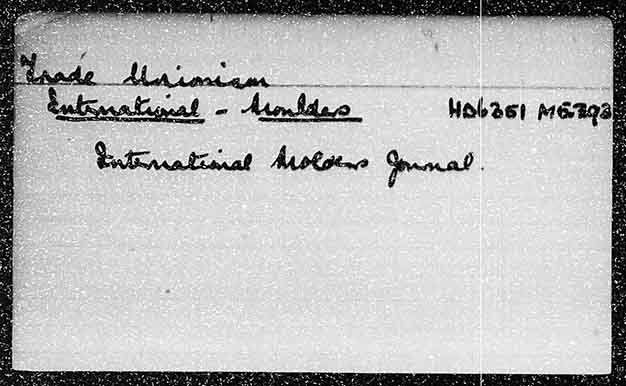 Trade Unionism
International - Moulders HD6351 ME393
International Molders Journal.